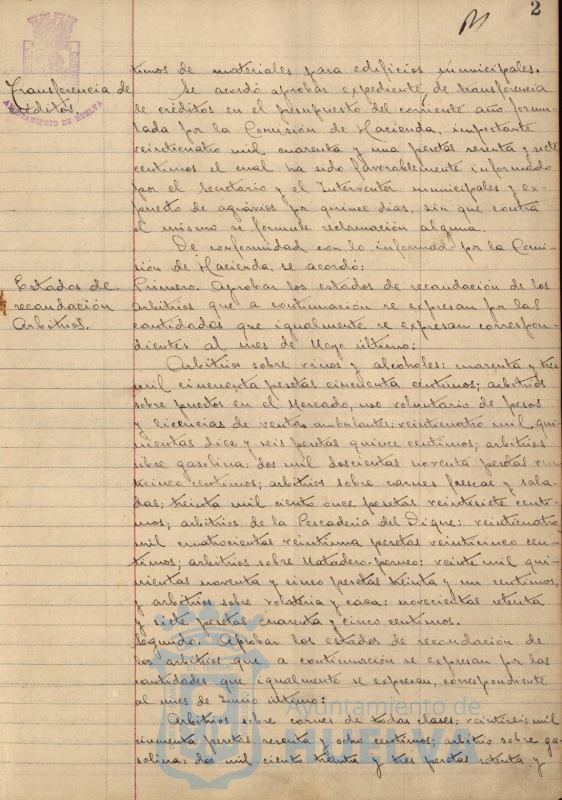 2
timos de materiales para edificios municipales.
Transferencia de
Créditos.
AYUNTAMIENTO DE HUELVA
Se acordó aprobar expediente, de transferencia
de créditos en el presupuesto del corriente año formu-
lada por la Comisión de Hacienda, importante
veinticuatro mil cuarenta y una pesetas sesenta y siete
centimos el cual ha sido favorablemente informado
por el Secretario y el Interventor municipales y ex-
puesto de agravios por quince dias, sin que contra
el mismo se formule reclamación alguna.
De conformidad con lo informado por la Comi-
sión de Hacienda, se acordó:
Estados de
recaudación
Arbitrios.
Primero. Aprobar los estados de recaudación de los
arbitrios que a continuación se expresan por las
cantidades que igualmente se expresan correspon-
dientes al mes de Mayo último:
Arbitrios sobre vinos y alcoholes: cuarenta y tres
mil cincuenta pesetas cincuenta centimos; arbitrios
sobre puestos en el Mercado, uso voluntario de pesos
y licencias de ventas ambulantes: veinticuatro mil qui-
nientas diez y seis pesetas quince centimos; arbitrios
sobre gasolina: dos mil doscientas noventa pesetas vein-
ticinco centimos; arbitrios sobre carnes frescas y sala-
das; treinta mil ciento once pesetas veintisiete centi-
mos; arbitrios de la Pescaderia del Dique: veinticuatro
mil cuatrocientas veintiuna pesetas veinticinco cen-
timos; arbitrios sobre Matadero-porcino: veinte mil qui-
nientas noventa y cinco pesetas treinta y un centimos,
y arbitrios sobre volateria y caza: novecientas setenta
y siete pesetas cuarenta y cinco centimos.
Segundo. Aprobar los estados de recaudación de
los arbitrios que a continuación se expresan por las
cantidades que igualmente se expresan, correspondiente
al mes de Junio último:
Arbitrios sobre carnes de todas clases: veintiseis mil
cincuenta pesetas sesenta y ocho centimos; arbitrio sobre ga-
solina: dos mil ciento treinta y tres pesetas setenta y
Ayuntamiento de
HUELVA